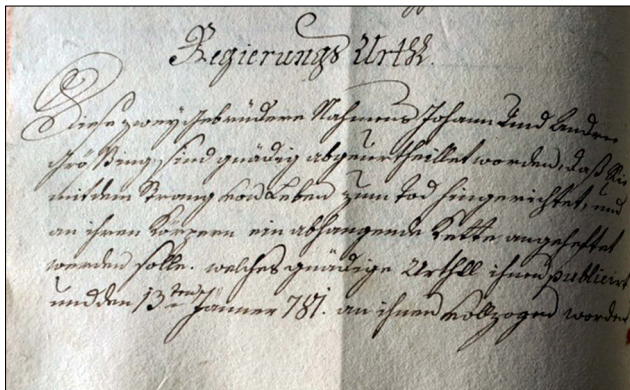 Regierungs Urthl.
Diese zwey Gebrüdere Nahmens Johann und Andree
Größing, sind gnädig abgeurtheillet worden, daß Sie
mit dem Strang von Leben zum Tod hingerichtet, und
an ihren Körpern ein abhangende Kette angeheftet
werden solle. welches gnädige Urthll ihnen publiciert
und den 13ten Jänner 781. an ihnen vollzogen worden